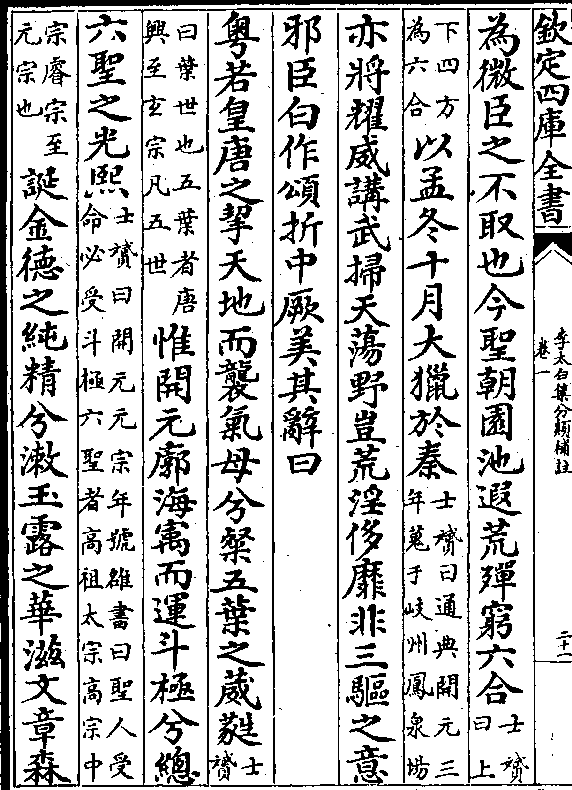 欽定四庫全書
李太白集分類補註
卷一
二十一
為微臣之不取也今聖朝園池遐荒殫窮六合士贇曰上
下四方為六合以孟冬十月大獵於秦士贇曰通典開元三年蒐于岐州鳳泉場
亦將耀威講武掃天蕩野豈荒淫侈靡非三驅之意
邪臣白作頌折中厥美其辭曰
粤若皇唐之挈天地而襲氣母兮粲五葉之葳蕤士贇
曰葉世也五葉者唐興至玄宗凡五世惟開元廓海㝢而運斗極兮總
六聖之光熙士贇曰開元元宗年號雒書曰聖人受命必受斗極六聖者高祖太宗高宗中
宗睿宗至元宗也誕金德之純精兮漱玉露之華滋文章森